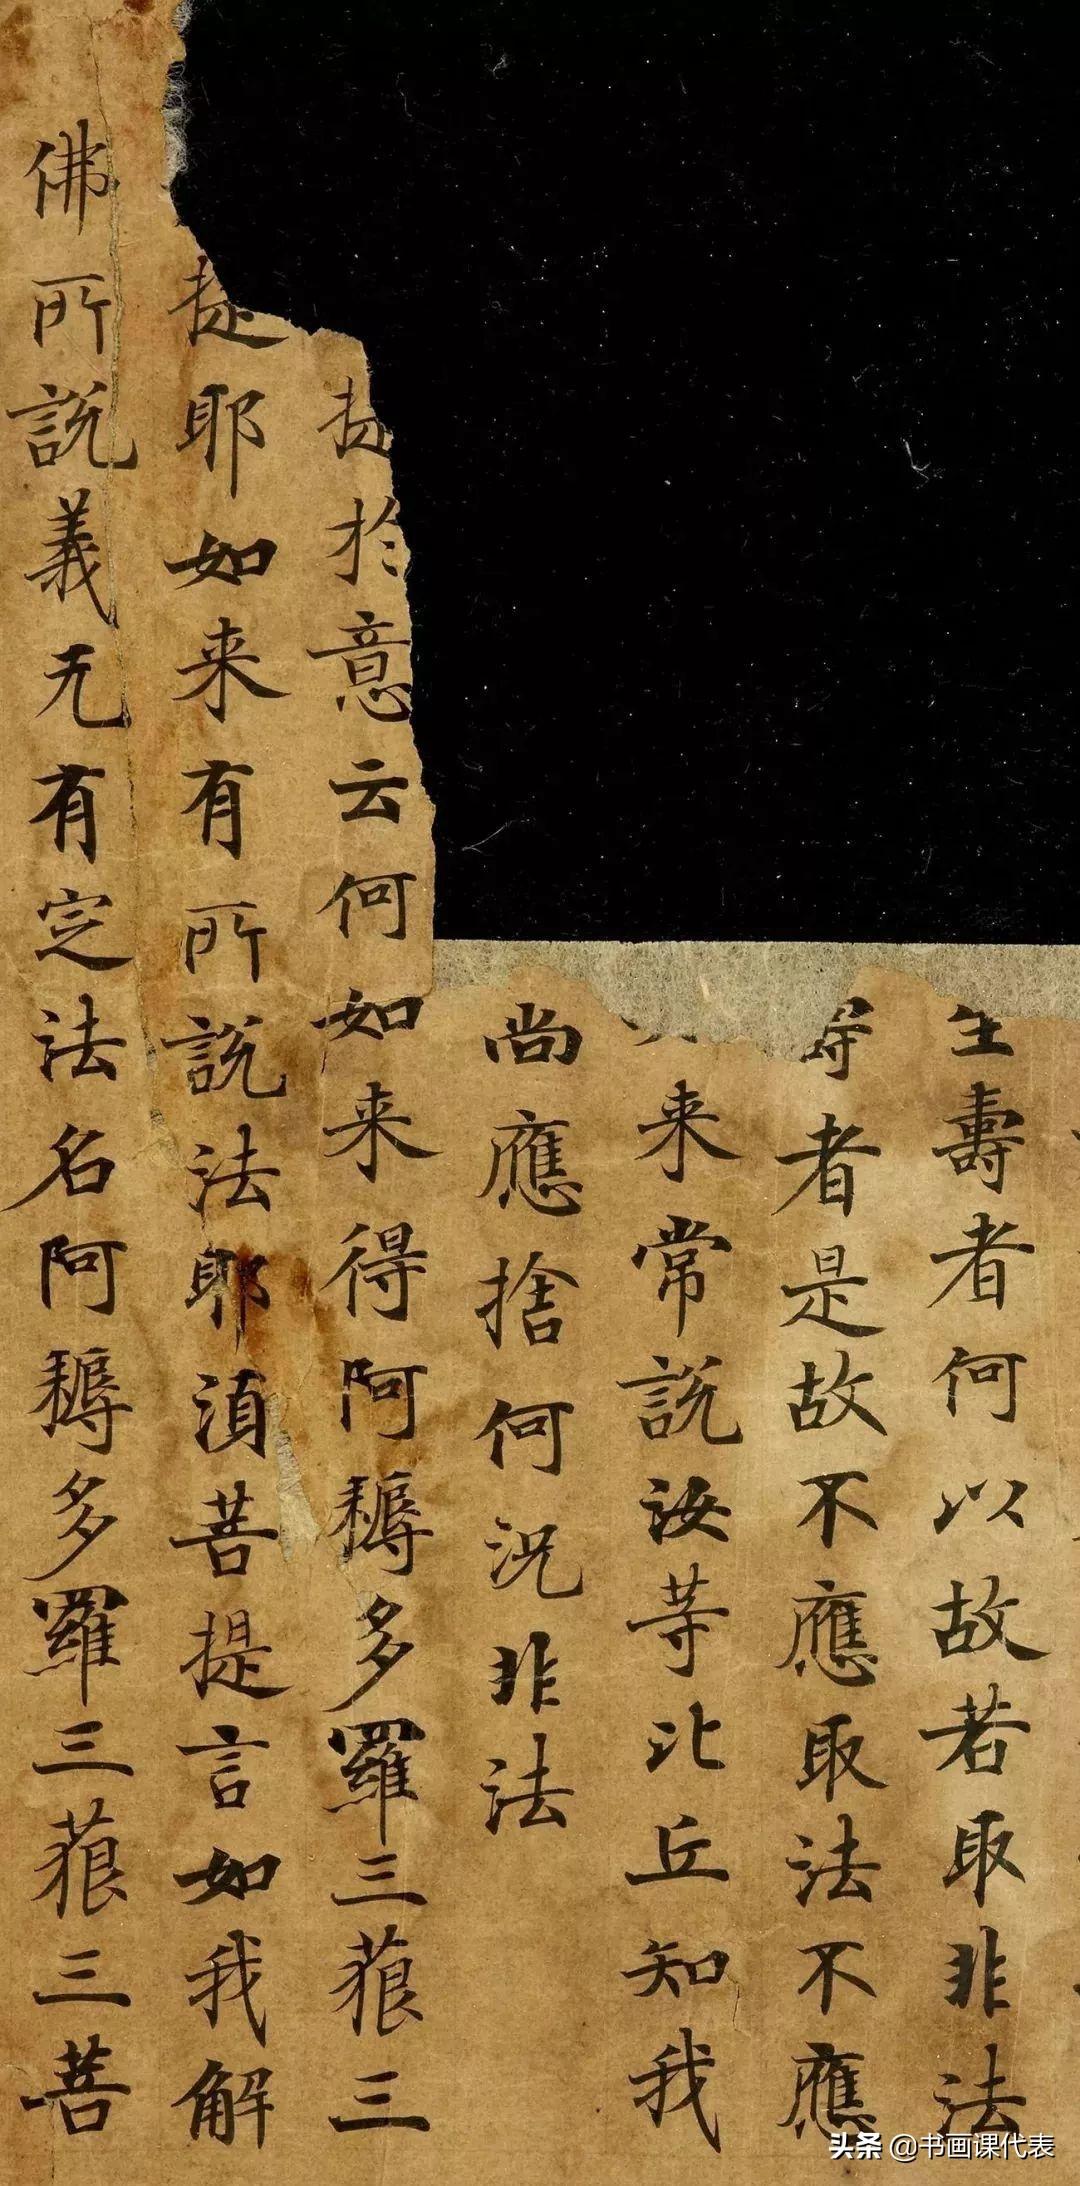 壽者何以故若取非法
者是故不應取法不應
来常說汝等比丘知我
尚應捨何況非法
提於意云何如来得阿耨多羅三藐三
提耶如来有所說法耶須菩提言如我解
佛所說義无有定法名阿耨多羅三藐三菩
头条 @书画课代表